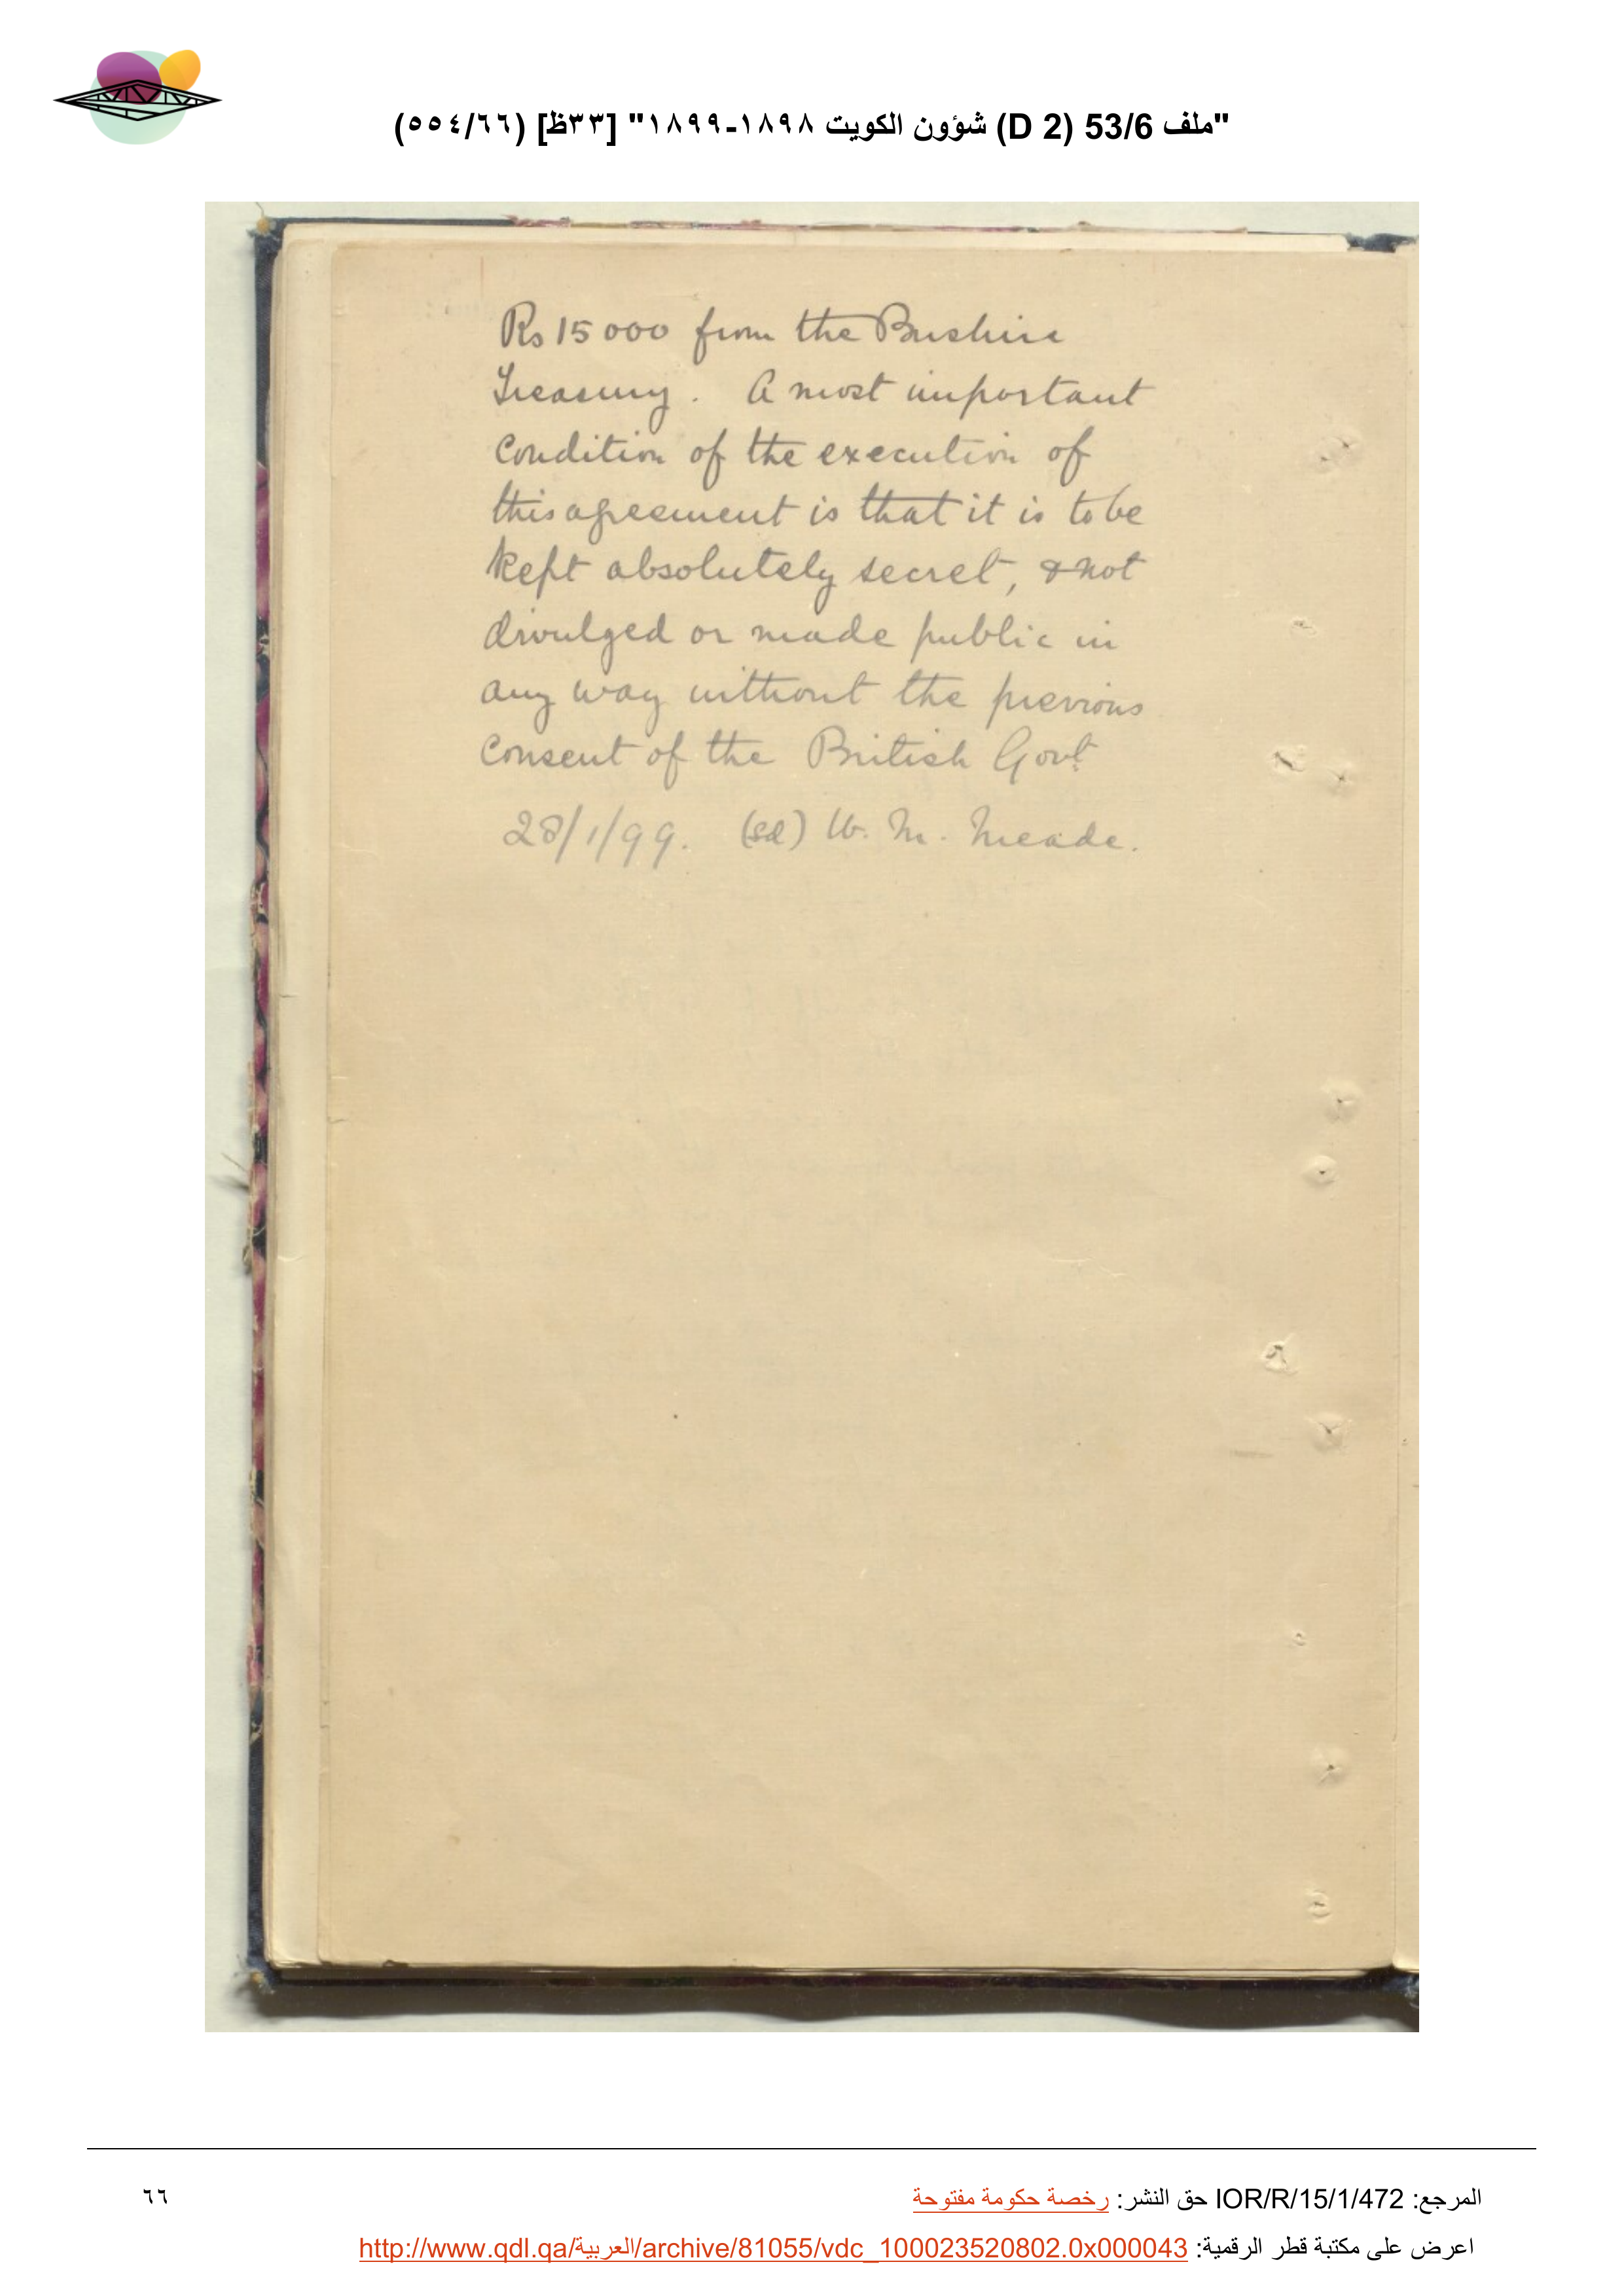 "ملف 53/6 (D 2) شؤون الكويت ١٨٩٨-١٨٩٩" [٣٣ظ] (٥٥٤/٦٦)
Rs 15000 from the Bushire
Treasury. A most important
condition of the execution of
this agreement is that it is to be
kept absolutely secret, & not
divulged or made public in
any way without the previous
consent of the British Govt.
28/1/99. (sd) W. M. Meade.
المرجع: IOR/R/15/1/472 حق النشر: رخصة حكومة مفتوحة
٦٦
اعرض على مكتبة قطر الرقمية: http://www.qdl.qa/العربية/archive/81055/vdc_100023520802.0x000043